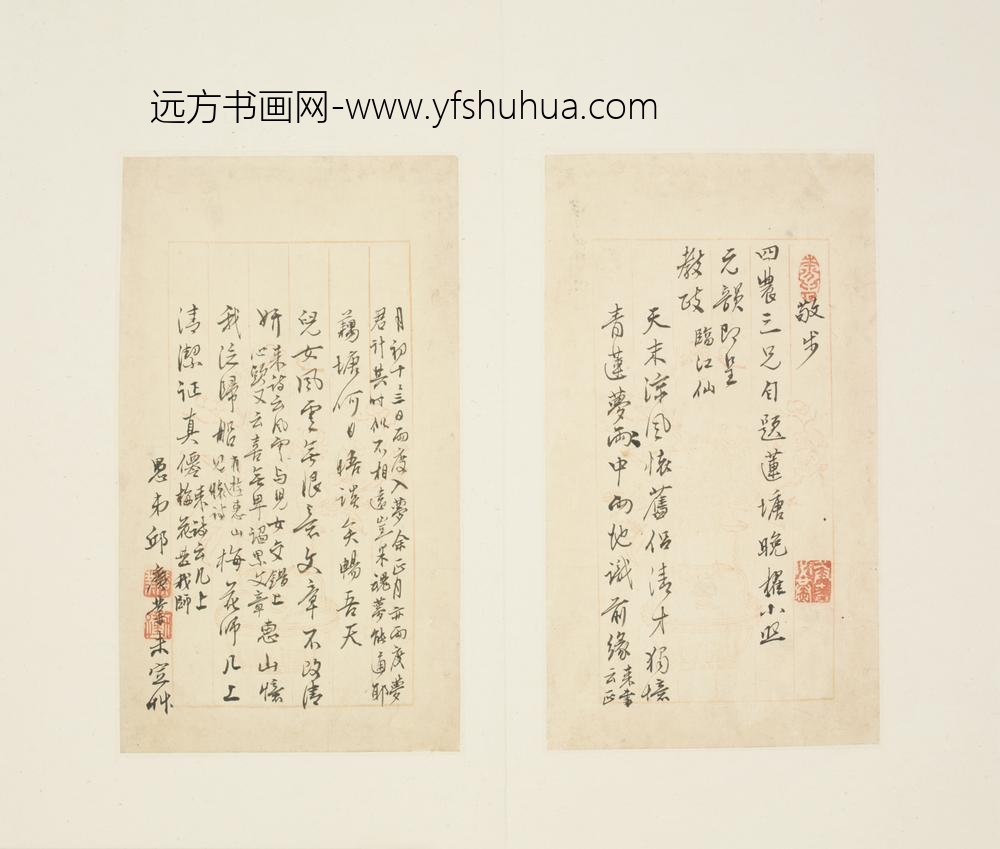 远方书画网-www.yfshuhua.com
敬步
四農三兄自題蓮塘晚櫂小照
元韻即呈
教政 臨江仙
天末涼風懷舊侶清才獨憶
青蓮夢雨中兩地識前緣 來書云正
月初十三日兩度入夢余正月亦兩度夢
君計其時似不相遠豈果魂夢能通耶
藕塘何日悟談矣暢吾天
兒女風雲無限意文章不改清
妍 來詩云風雲與兒女交錯上
心頭又云喜無卑謟累文章 惠山憶
我泛歸船 有游惠山 梅花師几上
見懷詩
清潔証真僊 來詩云几上
梅花是我師
愚弟邱 未定艸